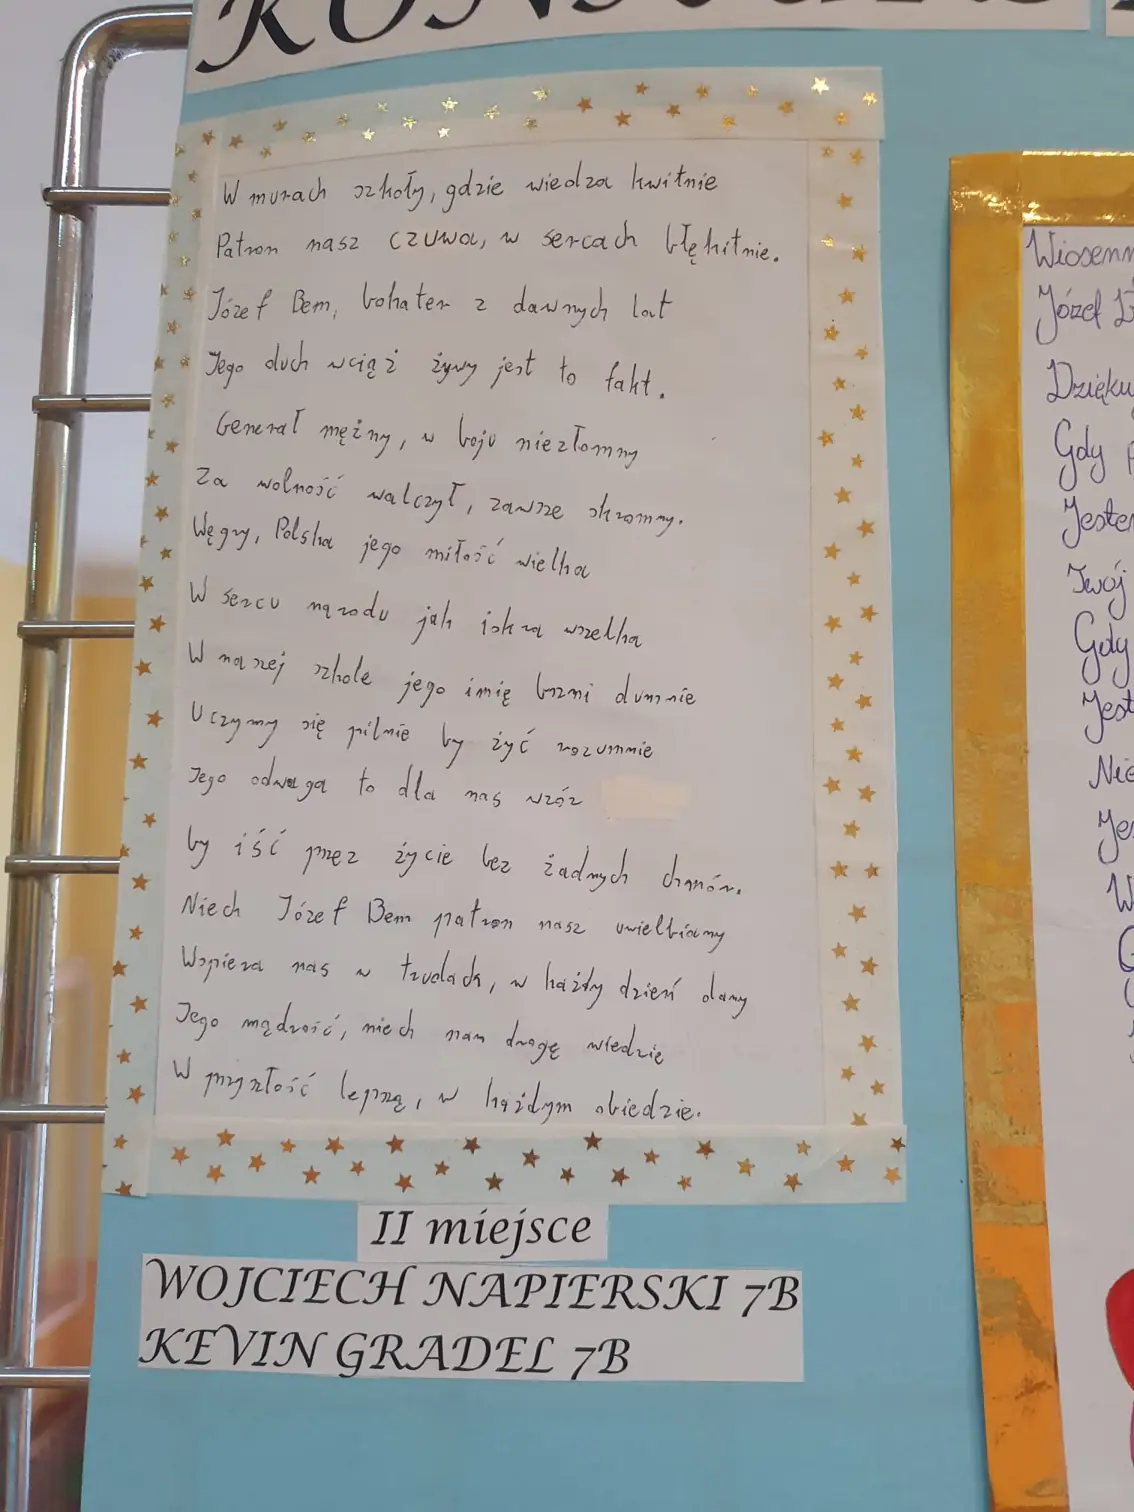 W murach szkoły, gdzie wiedza kwitnie
Patron nasz czuwa, w sercach błękitnie.
Józef Bem, bohater z dawnych lat
Jego duch wciąż żywy jest to fakt.
Generał mężny, w boju niezłomny
Za wolność walczył, zawsze skromny.
Węgry, Polska jego miłość wielka
W sercu narodu jak iskra wszelka
W naszej szkole jego imię brzmi dumnie
Uczymy się pilnie by żyć rozumnie
Jego odwaga to dla nas wzór
by iść przez życie bez żadnych chmór.
Niech Józef Bem patron nasz uwielbiamy
Wspiera nas w trudach, w każdy dzień damy
Jego mądrość, niech nam drogę wiedzie
W przyszłość lepszą, w każdym obiedzie.
II miejsce
WOJCIECH NAPIERSKI 7B
KEVIN GRADEL 7B
Józef
Gdy
Twój
Gdy